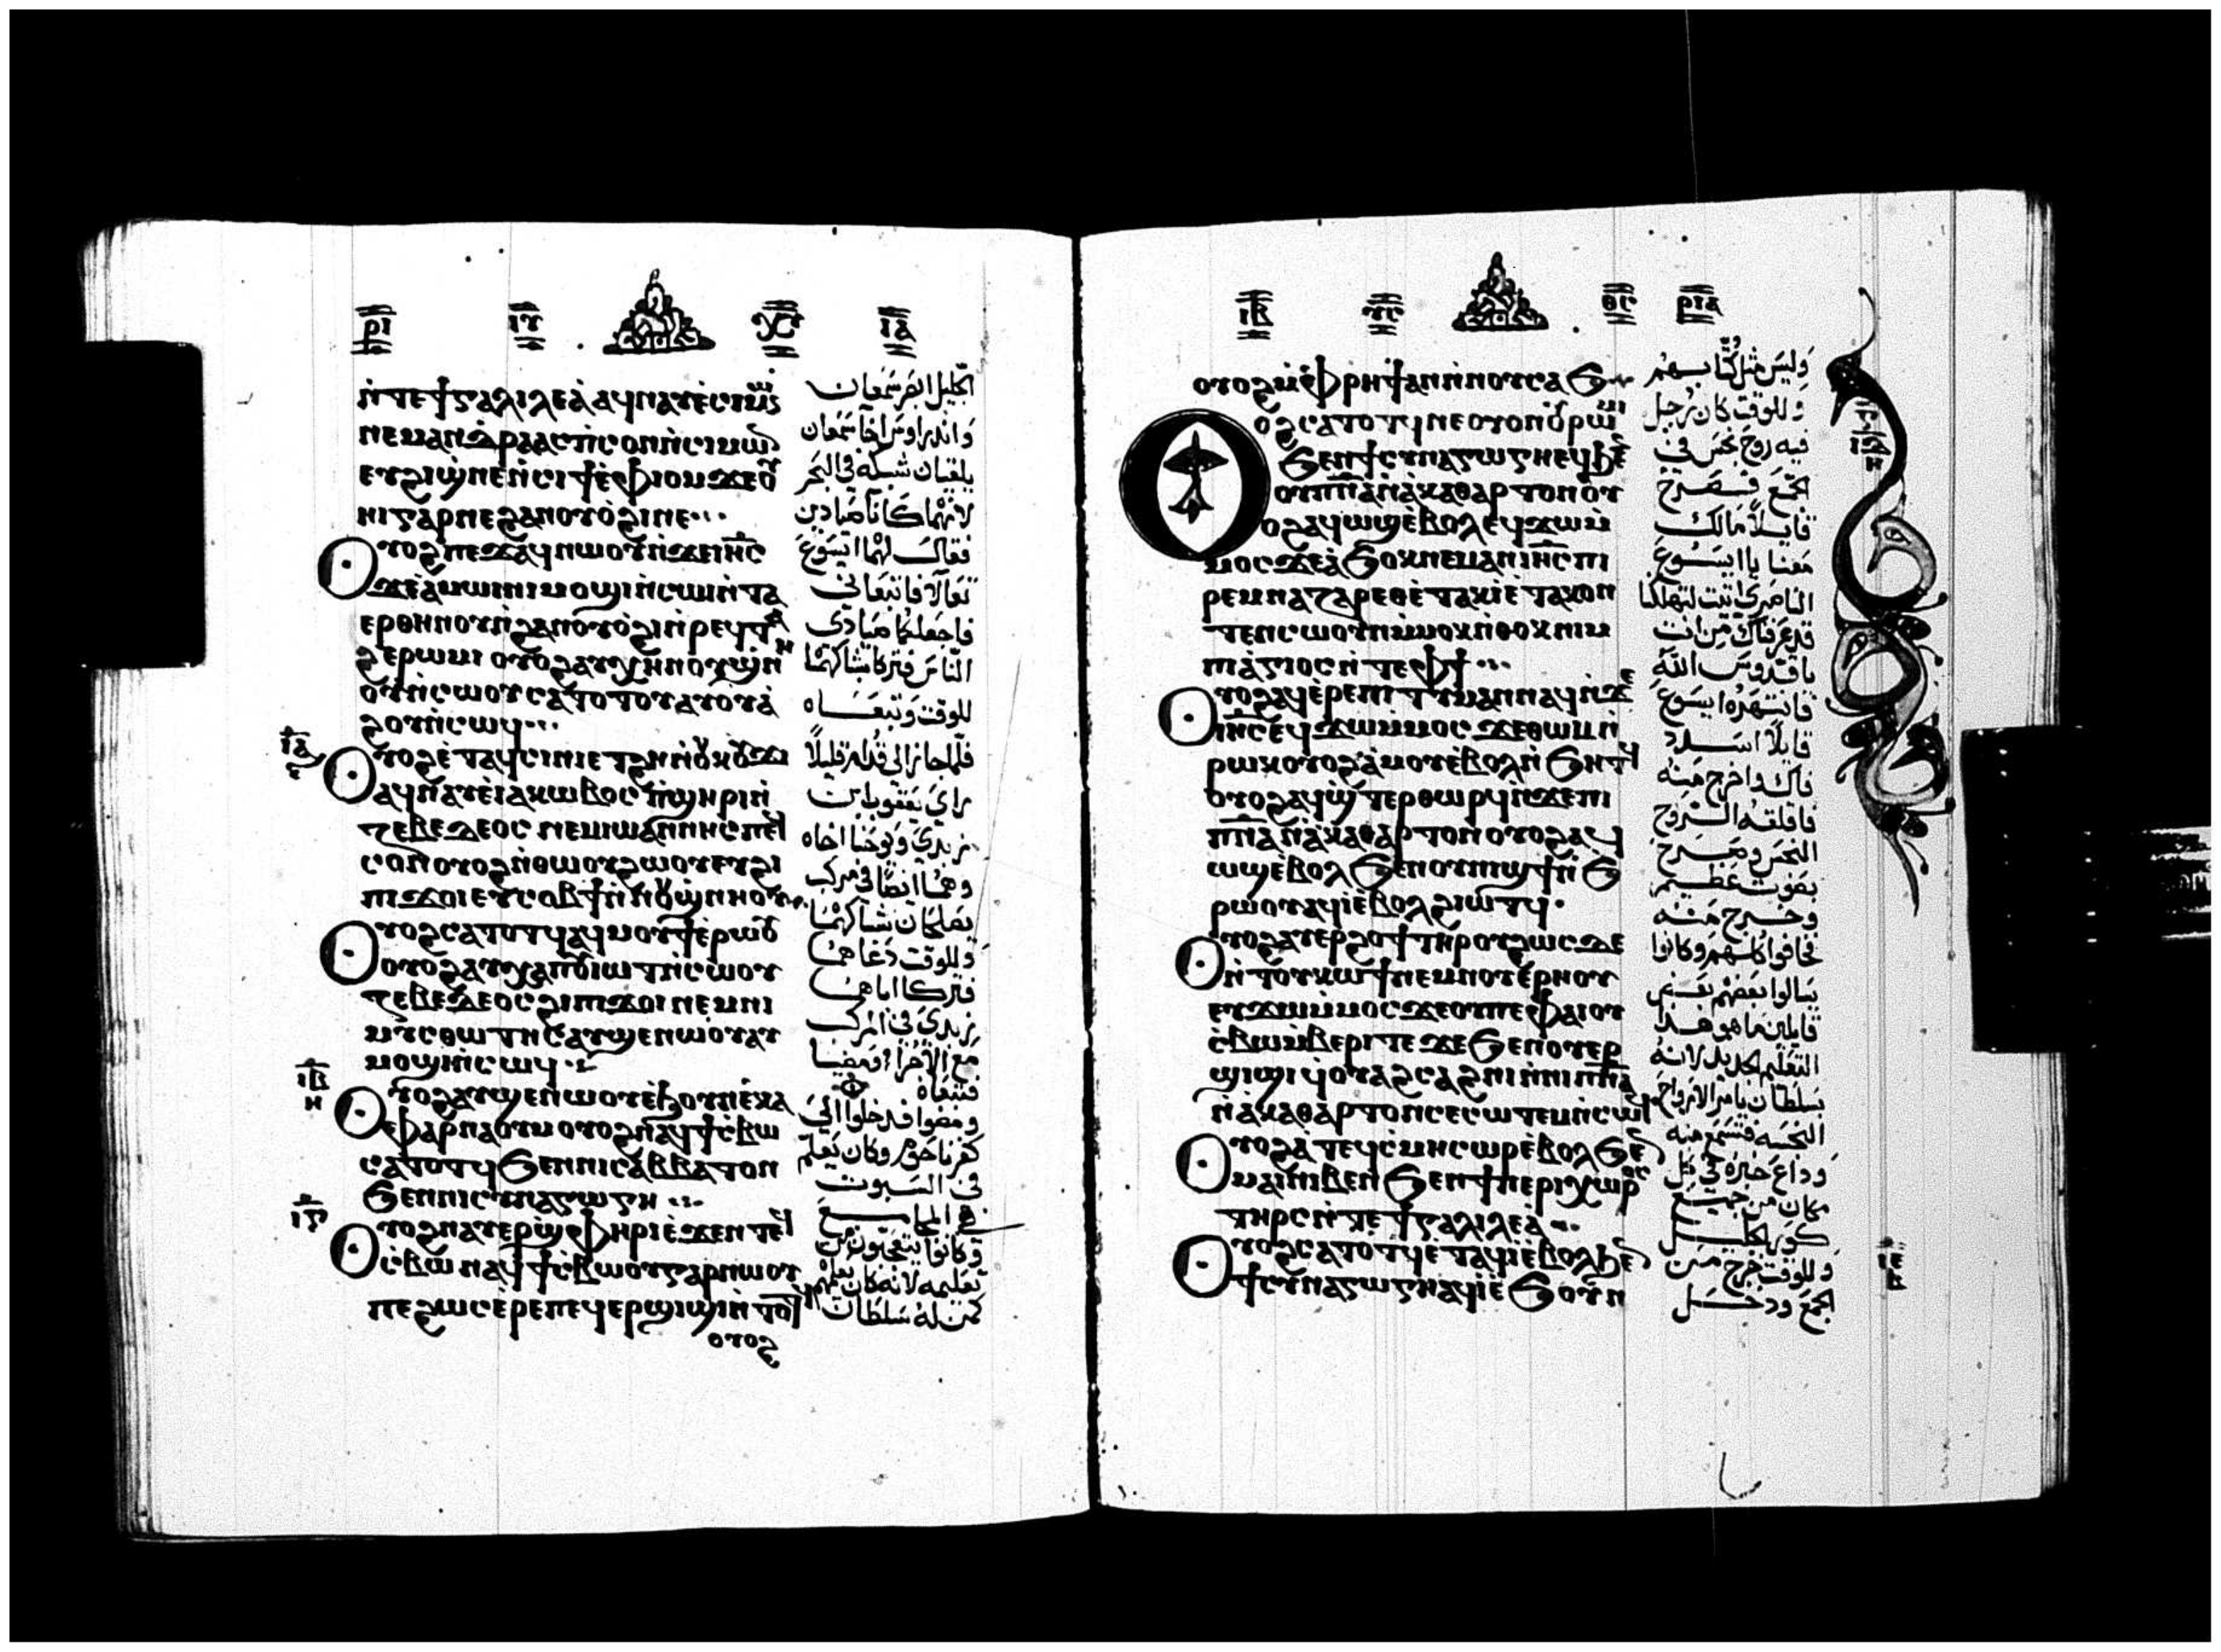 ⲣⲓ ⲓⲁ
ⲛ̀ⲧⲉϯⲅⲁⲗⲓⲗⲉⲁ̀ ⲁϥⲛⲁⲩⲉ̀ⲥⲓⲙⲱⲛ
ⲛⲉⲙⲁⲛⲇⲣⲉⲁⲥ ⲡ̀ⲥⲟⲛⲛ̀ⲥⲓⲙⲱ
ⲉⲩϩⲓϣⲛⲉⲛ̀ⲥⲓϯⲉ̀ⲫⲓⲟⲙϫⲉⲟⲩ
ⲛⲓⲅⲁⲣⲡⲉϩⲁⲛⲟⲩⲟϩⲓⲛⲉ
Ⲟⲩⲟϩⲡⲉϫⲁϥⲛⲱⲟⲩⲛ̀ϫⲉⲓⲏⲥ
ϫⲉⲁ̀ⲙⲱⲓⲛⲓⲙⲟϣⲓⲛ̀ⲥⲱⲓⲛ̀ⲧⲁ
ⲉⲣⲑⲏⲛⲟⲩⲛ̀ϩⲁⲛⲟⲩⲟϩⲓⲛ̀ⲣⲉϥⲧⲁ
ϩⲉⲣⲱⲙⲓ ⲟⲩⲟϩⲁⲩⲭⲁⲛⲟⲩϣⲛ̀
ⲟⲩⲛ̀ⲥⲱⲟⲩ ⲥⲁⲧⲟⲧⲟⲩ ⲁⲩⲟⲩⲁ̀
ϩⲟⲩⲛ̀ⲥⲱϥ
Ⲟⲩⲟϩⲉ̀ⲧⲁϥⲥⲓⲛⲓⲉⲧϩⲏⲛ̀ⲟⲩⲕⲟⲩϫⲓ
ⲁϥⲛⲁⲩⲉ̀ⲓⲁⲕⲱⲃⲟⲥ ⲡ̀ϣⲏⲣⲓⲛ̀
ⲍⲉⲃⲉⲇⲉⲟⲥ ⲛⲉⲙⲓⲱⲁⲛⲛⲏⲥⲡⲉϥ
ⲥⲟⲛⲟⲩⲟϩⲛ̀ⲑⲱⲟⲩϩⲱⲟⲩⲉⲩϩⲓ
ⲡϫⲟⲓⲉⲩⲥⲟⲃϯⲛ̀ⲛⲟⲩϣⲛⲏⲟⲩ
Ⲟⲩⲟϩⲥⲁⲧⲟⲧϥⲁϥⲙⲟⲩϯⲉ̀ⲣⲱⲟⲩ
ⲟⲩⲟϩⲁⲩⲭⲁⲡⲟⲩⲓⲱⲧⲛ̀ⲥⲱⲟⲩ
ⲍⲉⲃⲉⲇⲉⲟⲥϩⲓⲡϫⲟⲓ ⲛⲉⲙⲛⲓ
ⲙⲓⲥⲑⲱⲧⲏⲥ ⲁⲩϣⲉⲛⲱⲟⲩⲁⲩ
ⲙⲟϣⲓⲛ̀ⲥⲱϥ
Ⲟⲩⲟϩⲁⲩϣⲉⲛⲱⲟⲩⲉ̀ϧⲟⲩⲛⲉ̀ⲕⲁ
ⲫⲁⲣⲛⲁⲟⲩⲙ ⲟⲩⲟϩⲛⲁϥϯⲥ̀ⲃⲱ
ⲥⲁⲧⲟⲧϥ ϧⲉⲛⲛⲓⲥⲁⲃⲃⲁⲧⲟⲛ
ϧⲉⲛⲛⲓⲥⲩⲛⲁⲅⲱⲅⲏ
Ⲟⲩⲟϩⲛⲁⲩⲉⲣϣ̀ⲫⲏⲣⲓⲉ̀ϫⲉⲛⲧⲉϥ
ⲥ̀ⲃⲱ ⲛⲁϥϯⲥ̀ⲃⲱⲟⲩⲅⲁⲣⲛⲱⲟⲩ
ⲡⲉϩⲱⲥⲉ̀ⲣⲉⲡⲉϥⲉⲣϣⲓϣⲓⲛ̀ⲧⲟⲧϥ
ⲟⲩⲟϩ
الجليل ابصر سمعان
واندراوس اخا سمعان
يلقيان شبكه في البحر
لانهما كانا صيادين
فقال لهما ايسوع
تعالا فاتبعاني
فاجعلكما صيادي
الناس فتركا شباكهما
للوقت وتبعاه
فلما جاز الى قدام قليلا
راى يعقوب ابن
زبدي ويوحنا اخاه
وهما ايضا في مركب
يصلحان شباكهما
وللوقت دعاهما
فتركا اباهما
زبدي في المركب
مع الاجرا ومضيا
فتبعاه
ومضوا فدخلوا الى
كفرناحوم وكان يعلم
في السبوت
في المجامع
وكانوا يتعجبون من
تعليمه لانه كان يعلمهم
كمن له سلطان
ⲓⲃ ⲣⲓⲁ
ⲟⲩⲟϩⲙ̀ⲫⲣⲏϯⲁⲛⲛ̀ⲛⲟⲩⲥⲁϧ
Ⲟⲩⲟϩⲥⲁⲧⲟⲧϥⲛⲉⲟⲩⲟⲛⲟⲩⲣⲱⲙⲓ
ϧⲉⲛϯⲥⲩⲛⲁⲅⲱⲅⲏⲉϥϧⲉⲛ
ⲟⲩⲡⲛⲁⲛ̀ⲁⲕⲁⲑⲁⲣⲧⲟⲛⲟⲩ
ⲟϩⲁϥⲱϣⲉ̀ⲃⲟⲗⲉϥϫⲱⲙ̀
ⲙⲟⲥϫⲉⲁ̀ϧⲟⲕⲛⲉⲙⲁⲛⲓⲏⲥⲡⲓ
ⲣⲉⲙⲛⲁⲍⲁⲣⲉⲑⲉ̀ⲧⲁⲕⲓⲉ̀ⲧⲁⲕⲟⲛ
ⲧⲉⲛⲥⲱⲟⲩⲛⲙ̀ⲙⲟⲕⲛ̀ⲑⲟⲕⲛⲓⲙ
ⲡⲓⲁ̀ⲅⲓⲟⲥⲛ̀ⲧⲉⲫϯ
Ⲟⲩⲟϩⲁϥⲉ̀ⲣⲉⲡⲓⲧⲓⲙⲁⲛⲛⲁϥⲛ̀ϫⲉ
ⲓⲏⲥⲉϥϫⲱⲙ̀ⲙⲟⲥ ϫⲉⲑⲱⲙⲛ̀
ⲣⲱⲕⲟⲩⲟϩⲁ̀ⲙⲟⲩⲉ̀ⲃⲟⲗⲛ̀ϧⲏⲧϥ
ⲟⲩⲟϩⲁϥϣ̀ⲧⲉⲣⲑⲱⲣϥⲛ̀ϫⲉⲡⲓ
ⲡⲛⲁⲛ̀ⲁ̀ⲕⲁⲑⲁⲣⲧⲟⲛⲟⲩⲟϩⲁϥ
ⲱϣⲉ̀ⲃⲟⲗϧⲉⲛⲟⲩⲛⲓϣϯⲛ̀ϧ
ⲣⲱⲟⲩⲁϥⲓⲉ̀ⲃⲟⲗϩⲓⲱⲧϥ
Ⲟⲩⲟϩⲁⲩⲉⲣϩⲟϯⲧⲏⲣⲟⲩϩⲱⲥⲇⲉ
ⲛ̀ⲧⲟⲩⲕⲱϯⲛⲉⲙⲛⲟⲩⲉ̀ⲣⲏⲟⲩ
ⲉⲩϫⲱⲙ̀ⲙⲟⲥ ϫⲉⲟⲩⲡⲉⲫⲁⲓⲟⲩ
ⲥ̀ⲃⲱⲙ̀ⲃⲉⲣⲓⲧⲉ ϫⲉϧⲉⲛⲟⲩⲉⲣ
ϣⲓϣⲓ ϥⲟⲩⲁϩⲥⲁϩⲛⲓⲛ̀ⲛⲓⲡⲛⲁ
ⲛ̀ⲁ̀ⲕⲁⲑⲁⲣⲧⲟⲛⲥⲉⲥⲱⲧⲉⲙⲛ̀ⲥⲱϥ
Ⲟⲩⲟϩⲁ̀ⲧⲉϥⲥ̀ⲙⲏⲥⲱⲣⲉ̀ⲃⲟⲗϧⲉⲛ
ⲙⲁⲓⲛⲓⲃⲉⲛ ϧⲉⲛϯⲡⲉⲣⲓⲭⲱⲣⲟⲥ
ⲧⲏⲣⲥⲛ̀ⲧⲉϯⲅⲁⲗⲓⲗⲉⲁ̀
Ⲟⲩⲟϩⲥⲁⲧⲟⲧϥⲉ̀ⲧⲁϥⲓⲉ̀ⲃⲟⲗϧⲉⲛ
ϯⲥⲩⲛⲁⲅⲱⲅⲏⲁϥⲓⲉ̀ϧⲟⲩⲛ
وليس مثل كتابهم
وللوقت كان رجل
فيه روح نجس في
المجمع فصرخ
قايلا مالك
معنا يا ايسوع
الناصري اتيت لتهلكنا
قد عرفناك من انت
يا قدوس الله
فانتهره ايسوع
قايلا اسدد
فاك واخرج منه
فاقلقه الروح
النجس وصرخ
بصوت عظيم
وخرج منه
فخافوا كلهم وكانوا
يسالوا بعضهم بعض
قايلين ما هو هذا
التعليم الجديد لانه
بسلطان يامر الارواح
النجسه فتسمع منه
وذاع خبره في كل
مكان من جميع
كور الجليل
وللوقت خرج من
المجمع ودخل